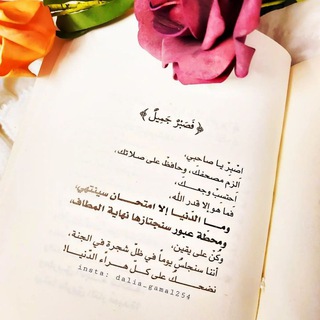 ﴿فَصَبْرٌ جَمِيلٌ﴾
اصْبِرْ يا صاحبي.
الزم مصحفك، وحافظ على صلاتك،
احتسِبْ وجعكَ،
فما هو إلا قدر الله،
وما الدُّنيا إلا امتحـــان سينتهي،
ومحطّة عبور سنجتازها نهاية المطاف،
وكُن على يقين،
أننا سنجلسُ يوماً في ظلّ شجرة في الجنة،
نضحكُ على كلِّ هراء الدُّنيا!
insta: dalia_gamal254